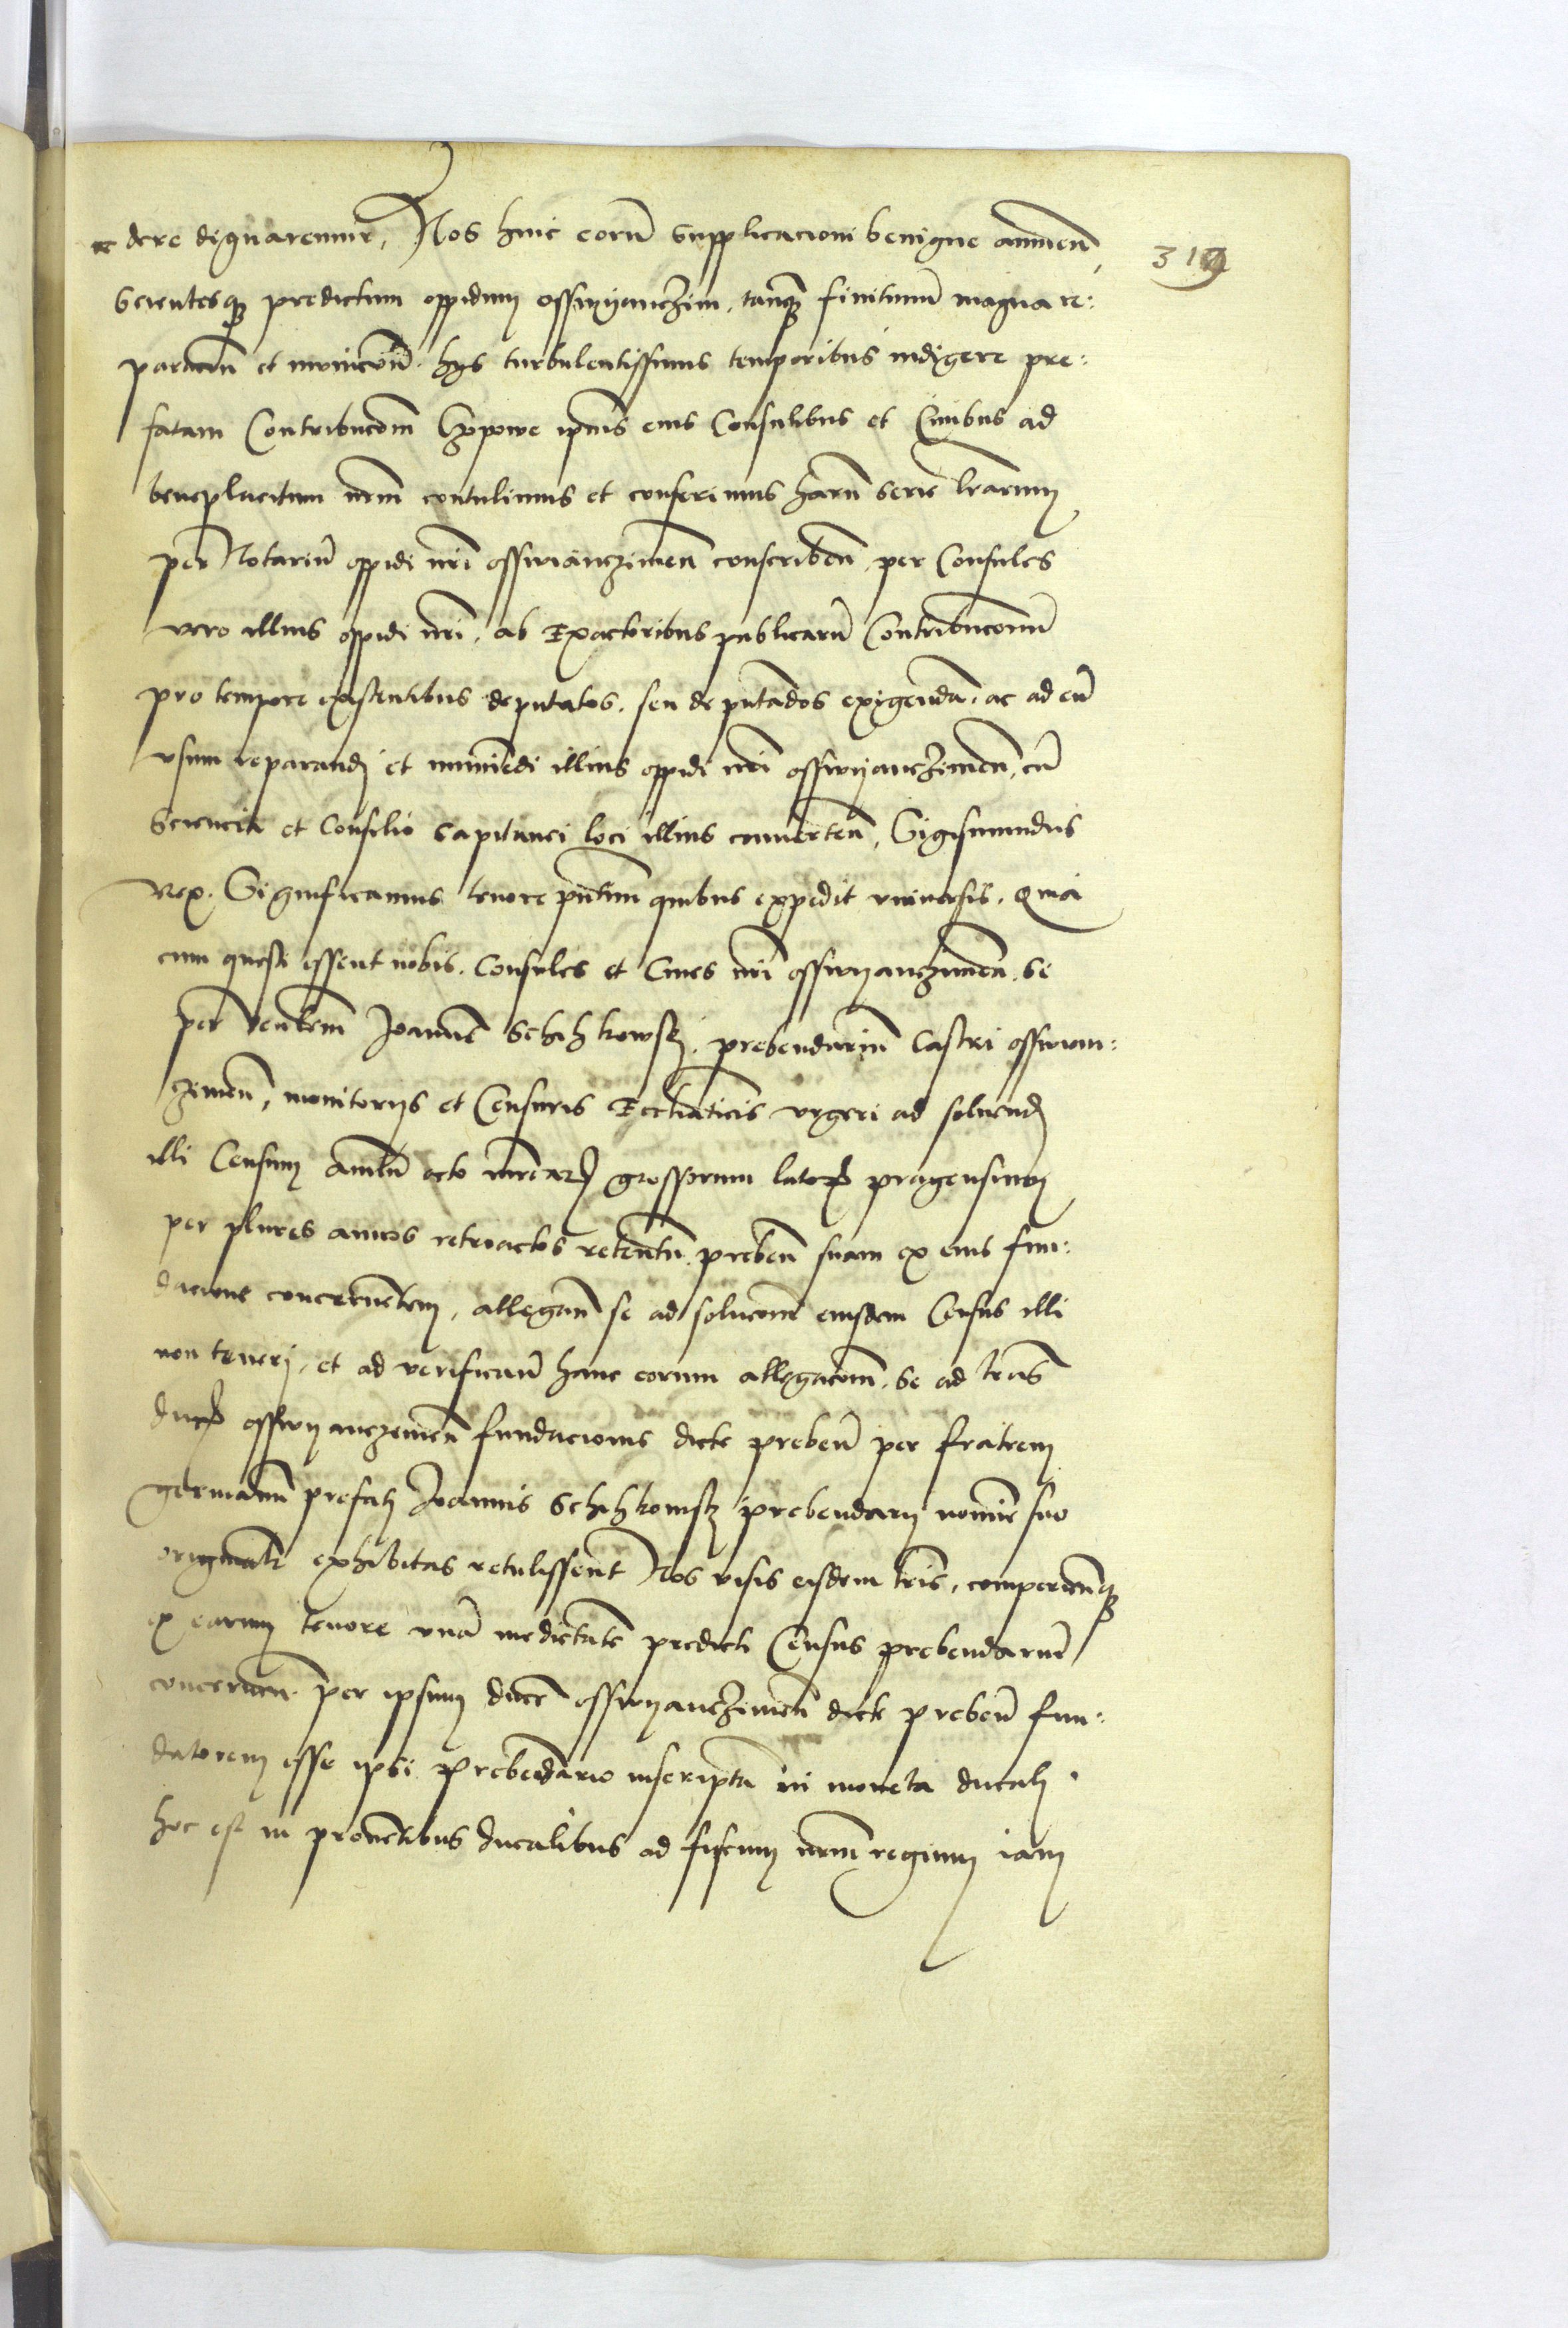 dere dignaremur, Nos huic eorū supplicacioni benigne annuen̄,
Scientesq; predictum oppidum osswyanczim, tanq̄; finitimū magna re:
paracōn et municōn̄, hys turbulentissimis temporibus indigere pre:
fatam Contribucōm Czopowe ip̄mis eius Consulibus et Ciuibus ad
beneplacitum nr̄m contulimus et conferimus harū serie l̄rarum
per Notariū oppidi nr̄i osswianczimen̄ conscriben̄, per Consules
vero illius oppidi nr̄i, ab Exactoribus publicarū Contribucōnū
pro tempore existentibus deputatos, seu deputados exigendā, ac ad eū
vsum reparandj et muniēdi illius oppidi nr̄i osswyanczimen̄, cū
Sciencia et Consilio Capitanei loci illius conuerten̄, Sigismundus
Rex, Significamus tenore pn̄tium quibus expedit vniuersis, Quia
cum questi essent nobis, Consules et Ciues nr̄i osswyanczimen̄ se
per Ven̄lem Joannē Schihkowsky, prebendariū Castri osswian:
zimen̄, monitorys et Censuris Eccl̄iaticis vrgeri ad soluendū
illi Censum Annuū octo mr̄car; grossorum lator; pragensium
per plures annos retroactos retentū, preben̄ suam ex eius fun:
dacione concernentem, allegan̄ se ad solucōnē eiusdem Census illi
non tenerj, et ad verificanū hanc eorum allegacōm, Se ad l̄ras
ducis osswyanczimen̄ fundacionis dicte preben̄ per fratrem
germanū prefatj Joannis Schihkowsky prebendarij nomīe suo
originalr̄ exhibitas retulissent Nos visis eisdem l̄ris, comperien̄q;
ex earum tenore vnā medietatē predicti Census prebendariū
concernen̄ per ipsum ducē osswyanczimen̄ dicte preben̄ fun:
datorem esse ipsi prebendario inscriptā in moneta ducalj,
hoc est in prouentibus ducalibus ad fiscum nr̄m regium iam
319